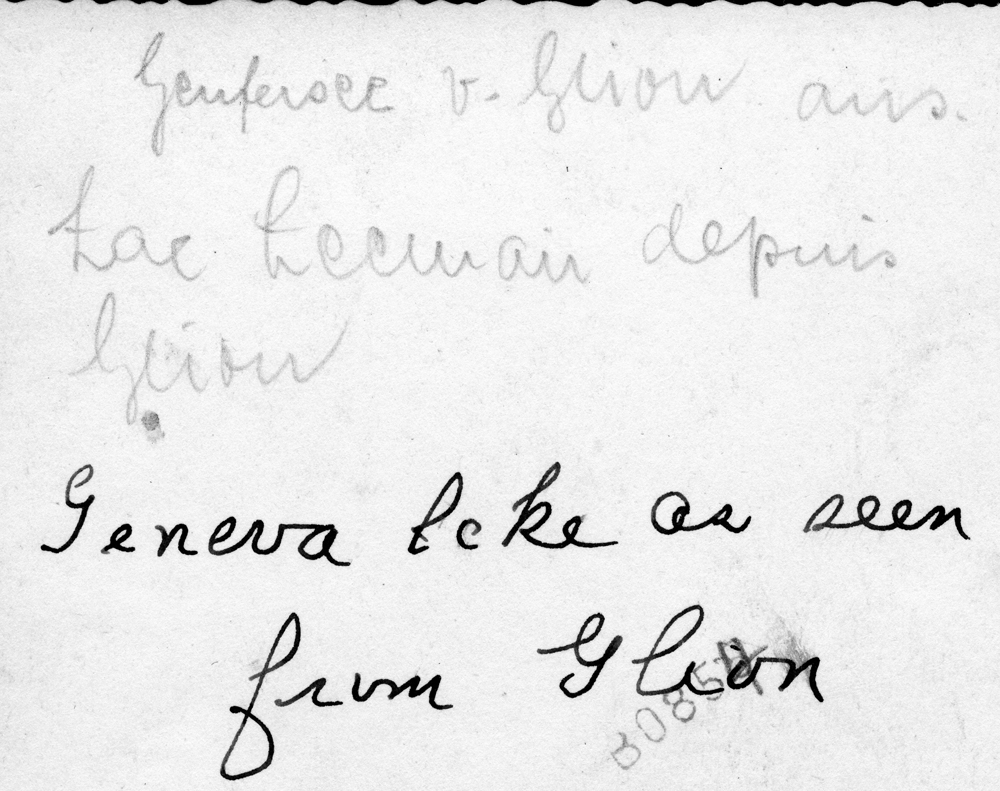 Genfersee v. Glion aus.
Lac Leeman depuis
Glion
Geneva lake as seen
from Glion